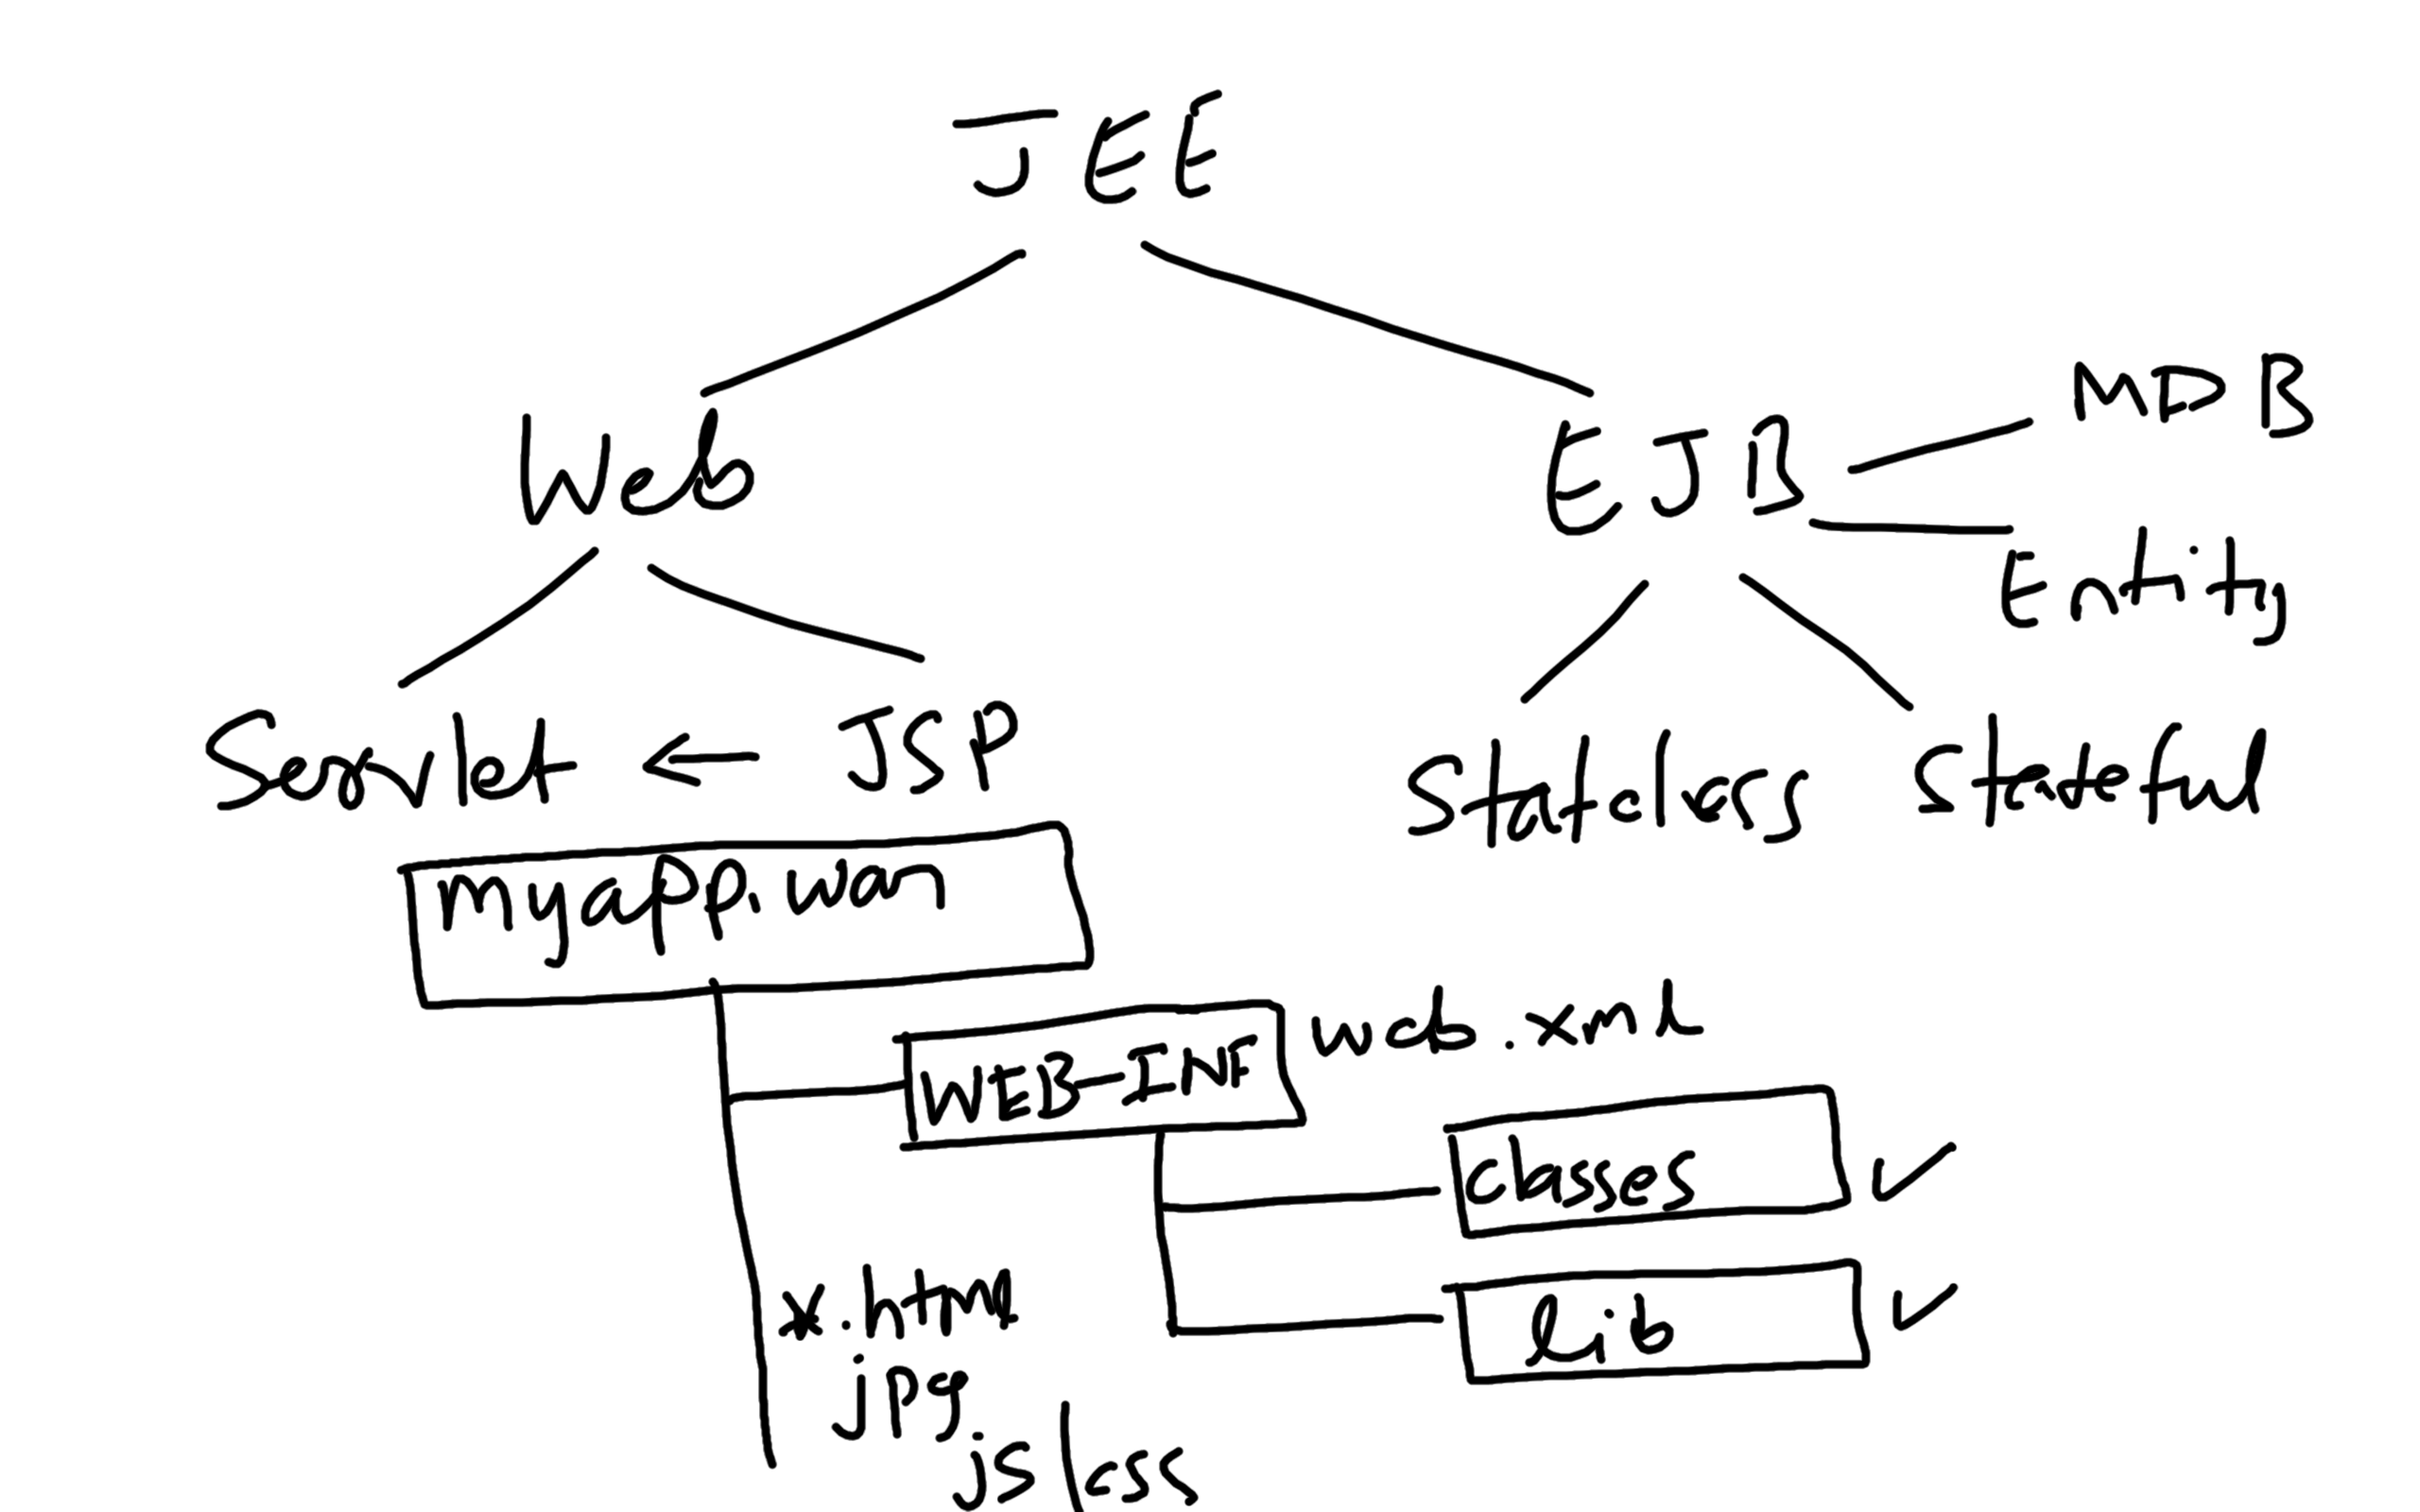 JEE
Web
EJB
MDB
Entity
Servlet ← JSP
Stateless
Stateful
myapp.war
WEB-INF
web.xml
classes ✓
lib ✓
*.html
jpg
js/css